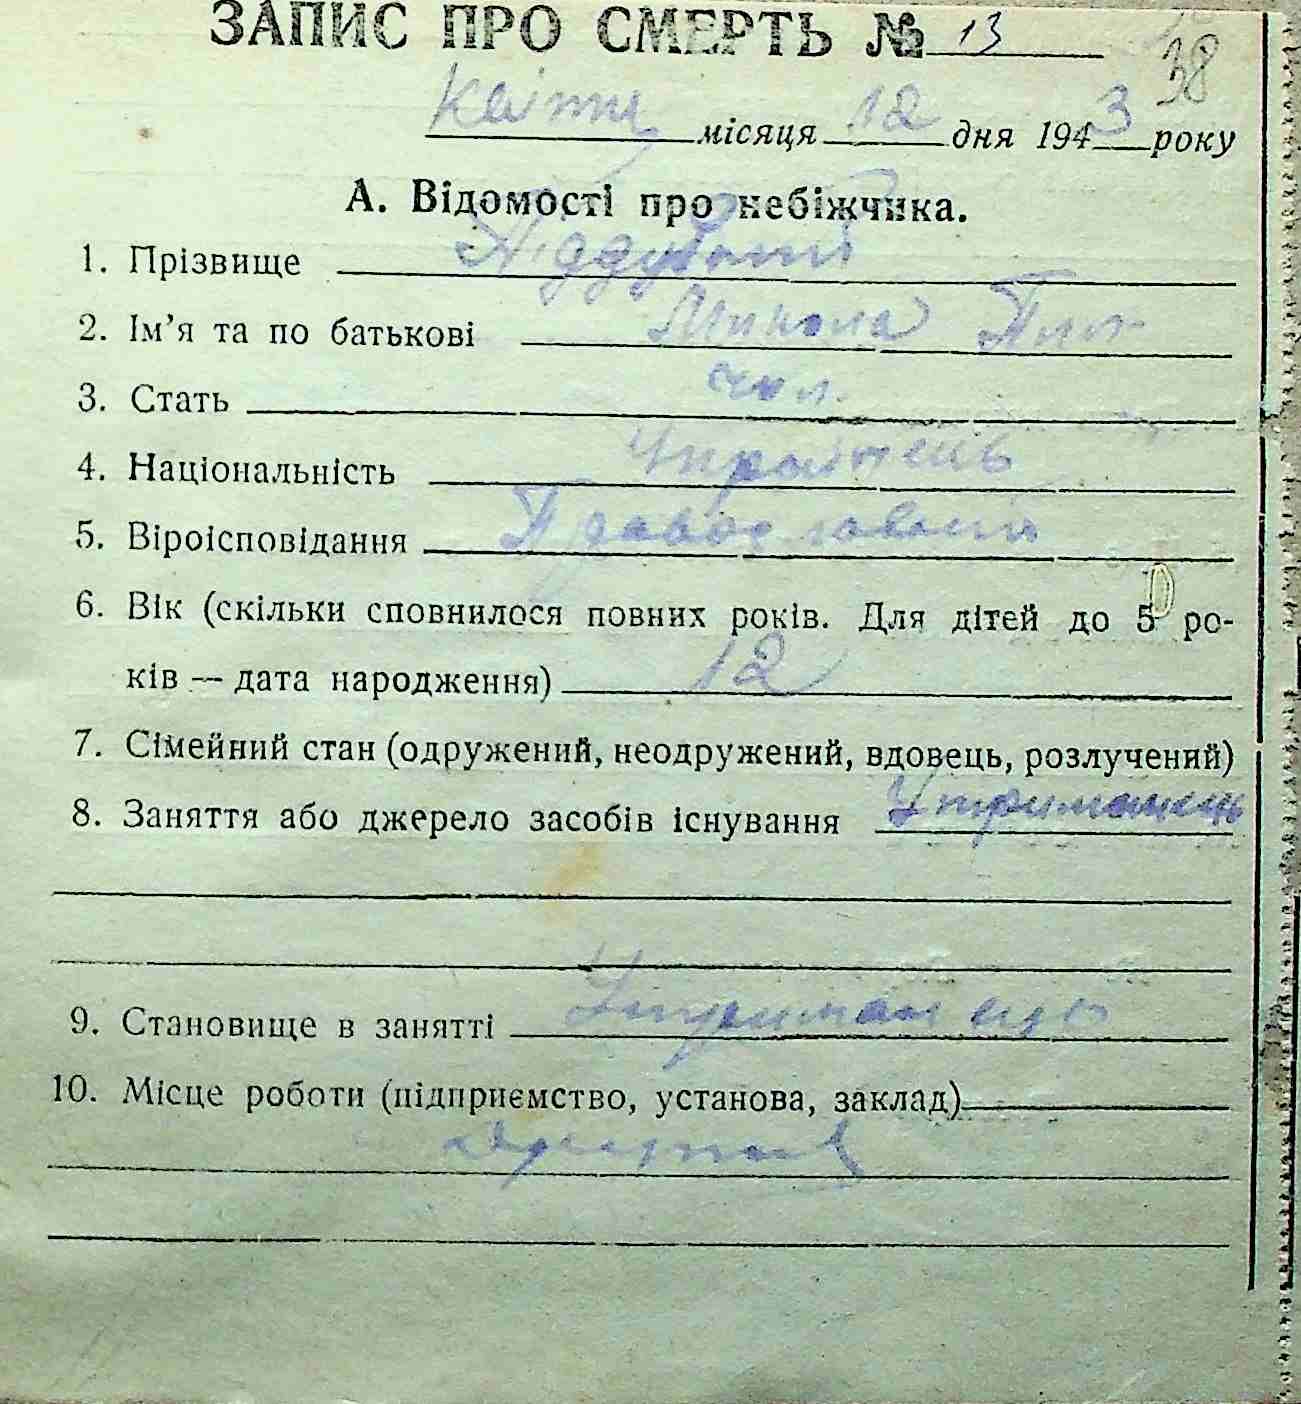 ЗАПИС ПРО СМЕРТЬ № 13
38
Квітня місяця 12 дня 1943 року
А. Відомості про небіжчика.
1. Прізвище Піддубний
2. Ім’я та по батькові Микола
3. Стать чол.
4. Національність Українець
5. Віроісповідання Православний
6. Вік (скільки сповнилося повних років. Для дітей до 5 ро-
ків — дата народження) 12
7. Сімейний стан (одружений, неодружений, вдовець, розлучений)
8. Заняття або джерело засобів існування Утриманець
9. Становище в занятті Утриманець
10. Місце роботи (підприємство, установа, заклад)